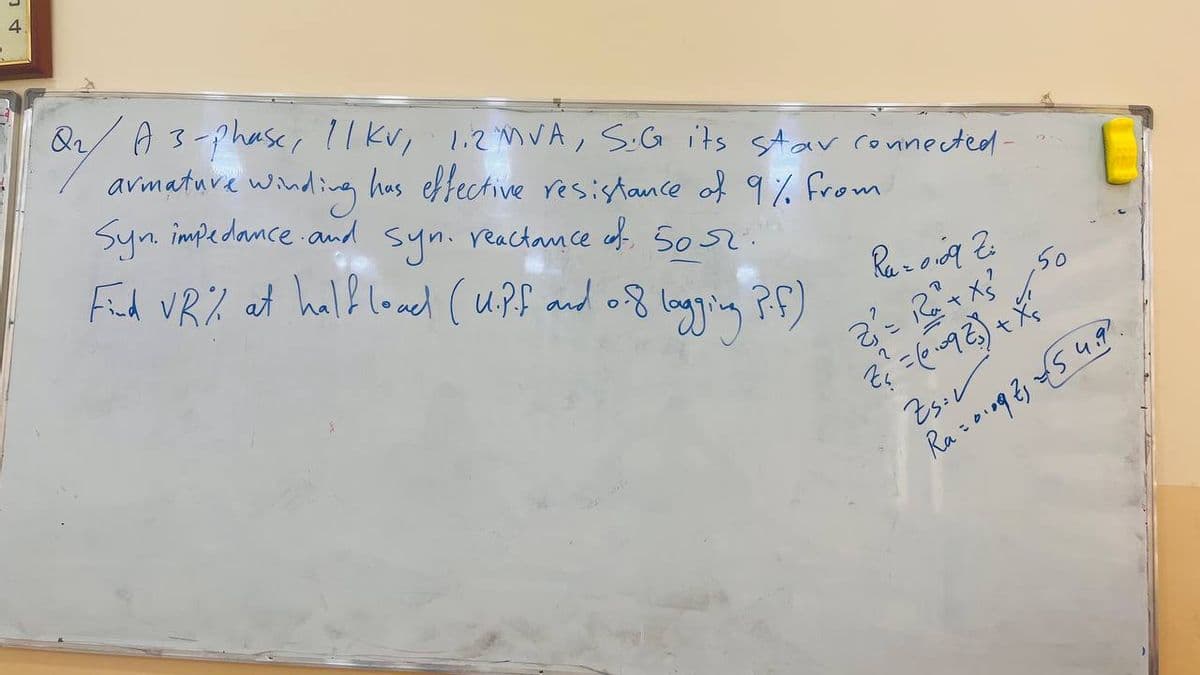 4
Q2/ A 3-phase, 11 kV, 1.2 MVA, S.G its star connected-
armature winding has effective resistance of 9% from
Syn. impedance and syn. reactance of 50Ω.
Find VR% at half load (U.P.f and 0.8 lagging P.f)
Ra = 0.09 Zs
Zs² = Ra² + Xs²
50
Zs² = (0.09 Zs)² + Xs²
Zs = ✓
Ra = 0.09 Zs =